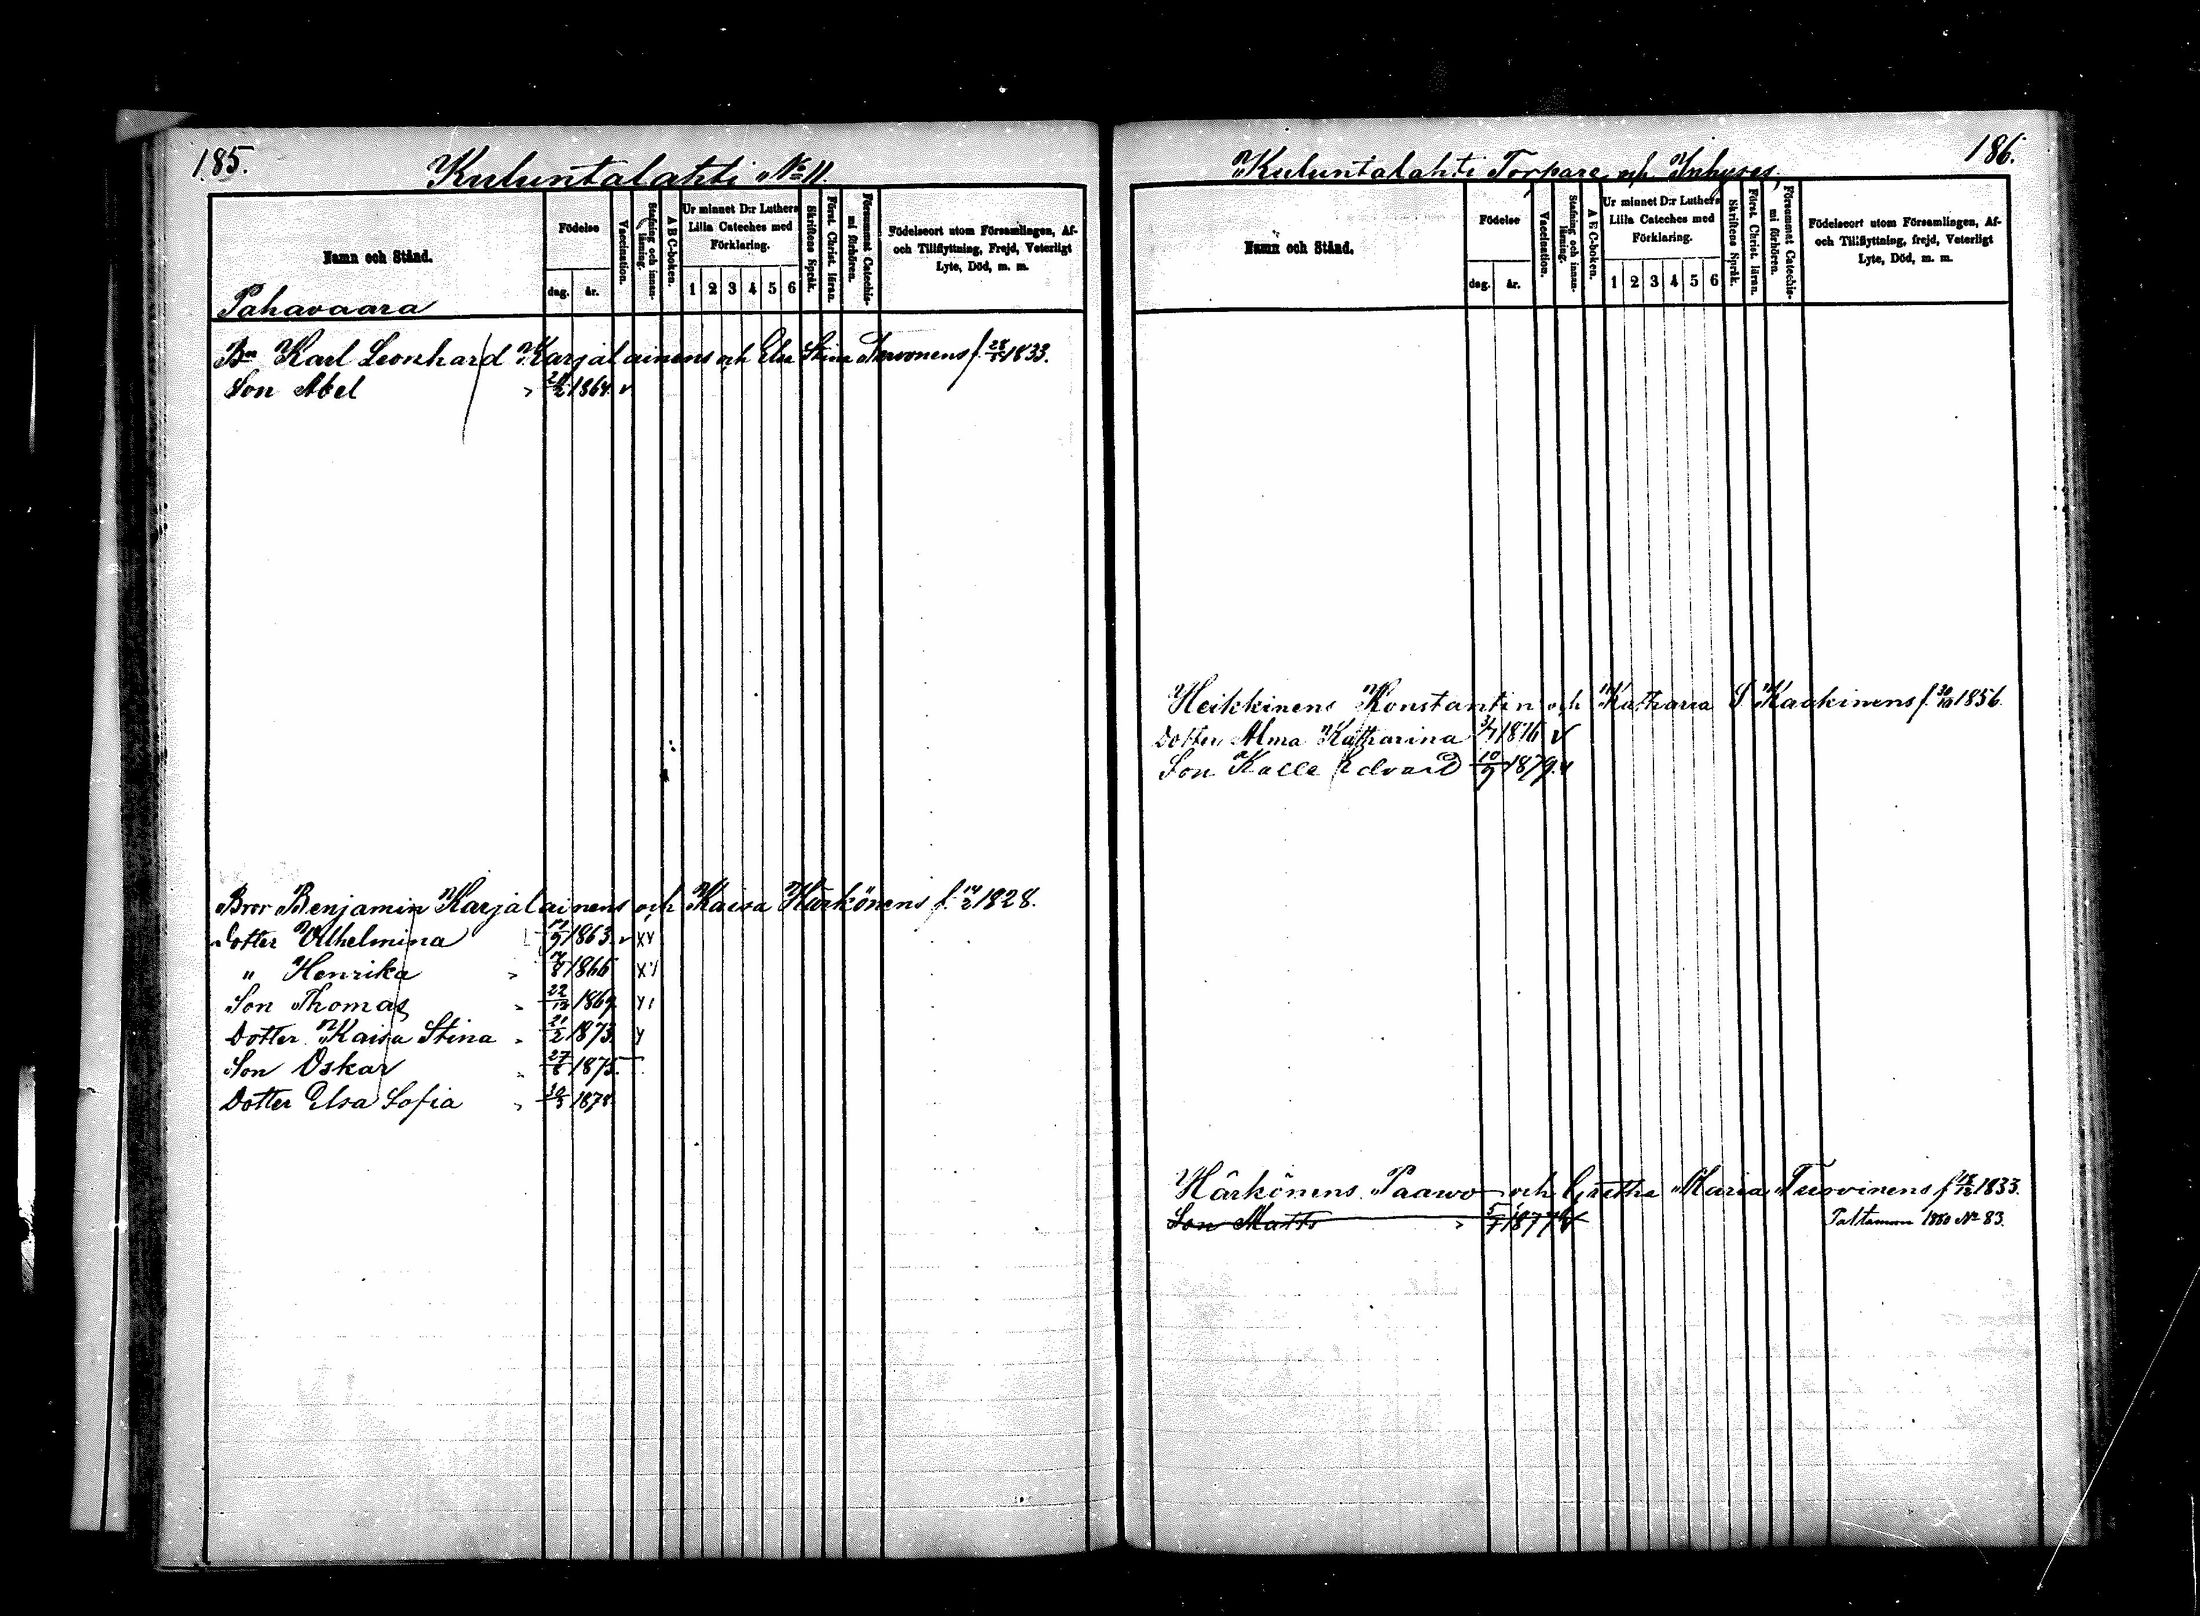 185.
Kuluntalahti No 11.
Namn och Stånd.
Födelse
dag.
år.
Vaccination.
Stafning och innan-läsning.
A B C-boken.
Ur minnet D:r Luthers
Lilla Cateches med
Förklaring.
1 2 3 4 5 6
Skriftens Språk.
Först. Christ. läran.
Försummat Catechis-
mi förhören.
Födelseort utom Församlingen, Af-
och Tillflyttning, Frejd, Veterligt
Lyte, Död, m. m.
Pahavaara
Bn Karl Leonhard Karjalainens och Elsa Stina Tervonens f. 1833.
Son Abel 1864.
Bror Benjamin Karjalainens och Kaisa Härkönens f. 14/2 1828.
Dotter Vilhelmina 1863.
" Henrika 1866
Son Thomas 22/12 1869
Dotter Kaisa Stina 21/2 1873.
Son Oskar 27/8 1875.
Dotter Elsa Sofia 1878.
186.
Kuluntalahti Torpare och Inhyses,
Namn och Stånd.
Födelse
dag.
år.
Vaccination.
Stafning och innan-
läsning.
A B C-boken.
Ur minnet D:r Luthers
Lilla Cateches med
Förklaring.
1 2 3 4 5 6
Skriftens Språk.
Först. Christ. läran.
Försummat Catechis-
mi förhören.
Födelseort utom Församlingen, Af-
och Tillflyttning, frejd, Veterligt
Lyte, Död, m. m.
Heikkinens Konstantin och Katharia S Kaakinens f. 30/10 1856.
Dotter Alma Katharina 3/7 1876
Son Kalle Edvard 10/9 1879.
Härkönens Paavo och Gretha Maria Turvinens f. 1833.
Son Matts 1877 Paltamon 1880 No 83.